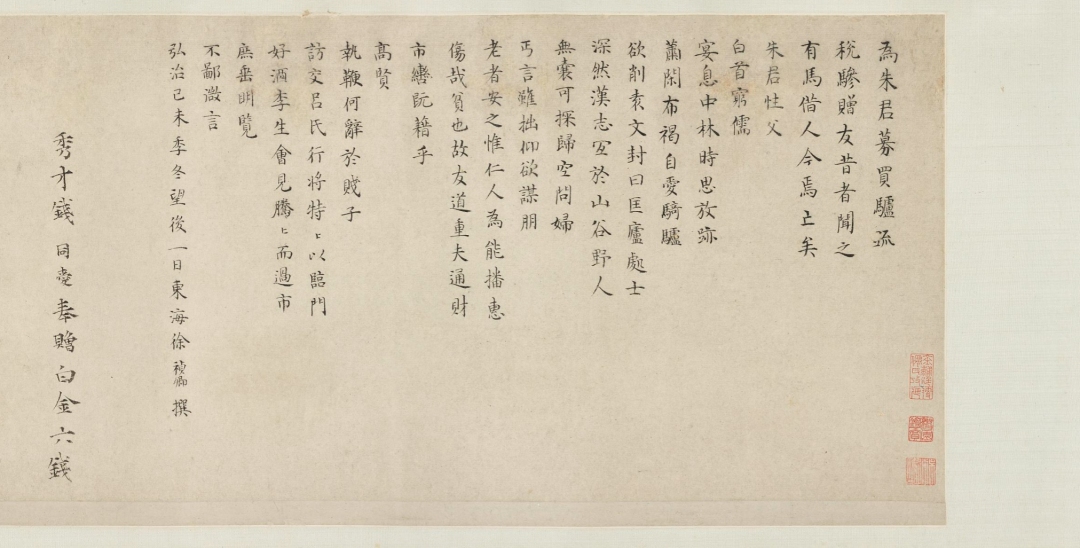 為朱君募買驢疏
稅驂贈友昔者聞之
有馬借人今焉亡矣
朱君性父
白首窮儒
宴息中林時思放跡
蕭閑布褐自愛騎驢
欲削袁文封曰匡廬處士
深然漢志宜於山谷野人
無囊可探歸空問婦
丐言雖拙仰欲謀朋
老者安之惟仁人為能播惠
傷哉貧也故友道重夫通財
市轡阮籍乎
高賢
執鞭何辭於賤子
訪交呂氏行將特〻以臨門
好酒李生會見騰〻而過市
庶垂明覽
不鄙微言
弘治己未季冬望後一日東海徐禎卿撰
秀才錢同愛奉贈白金六錢